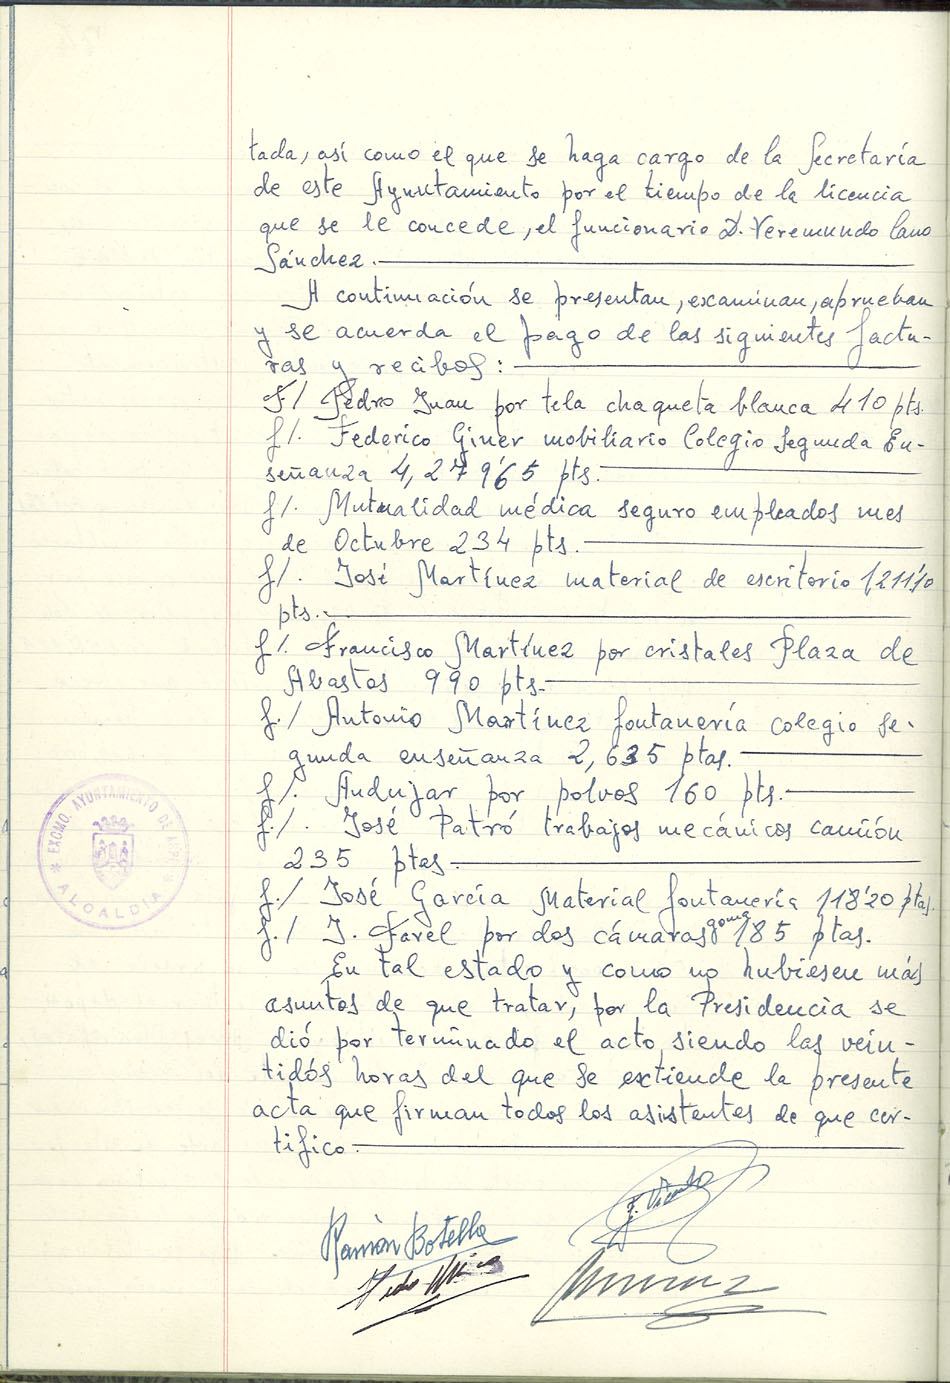 tada, así como el que se haga cargo de la Secretaría
de este Ayuntamiento por el tiempo de la licencia
que se le concede, el funcionario D. Veremundo Cano
Sánchez.
A continuación se presentan, examinan, aprueban
y se acuerda el pago de las siguientes factu-
ras y recibos:
F/ Pedro Juan por tela chaqueta blanca 410 pts.
f/. Federico Giner mobiliario Colegio Segunda En-
señanza 4,279'65 pts.
f/. Mutualidad médica seguro empleados mes
de Octubre 234 pts.
f/. José Martínez material de escritorio 1,211'10
pts.
f/. Francisco Martínez por cristales Plaza de
Abastos 990 pts.
f./ Antonio Martínez fontanería colegio se-
gunda enseñanza 2,635 ptas.
f/. Andujar por polvos 160 pts.
f./. José Patró trabajos mecánicos camión
235 ptas.
f./ José García Material fontanería 118'20 ptas.
f./ J. Favel por dos cámaras goma 185 ptas.
En tal estado y como no hubiesen más
asuntos de que tratar, por la Presidencia se
dió por terminado el acto, siendo las vein-
tidós horas del que se extiende la presente
acta que firman todos los asistentes de que cer-
tifico.
EXCMO. AYUNTAMIENTO DE
ALCALDIA
F. Vicente
Ramón Botella
Pedro